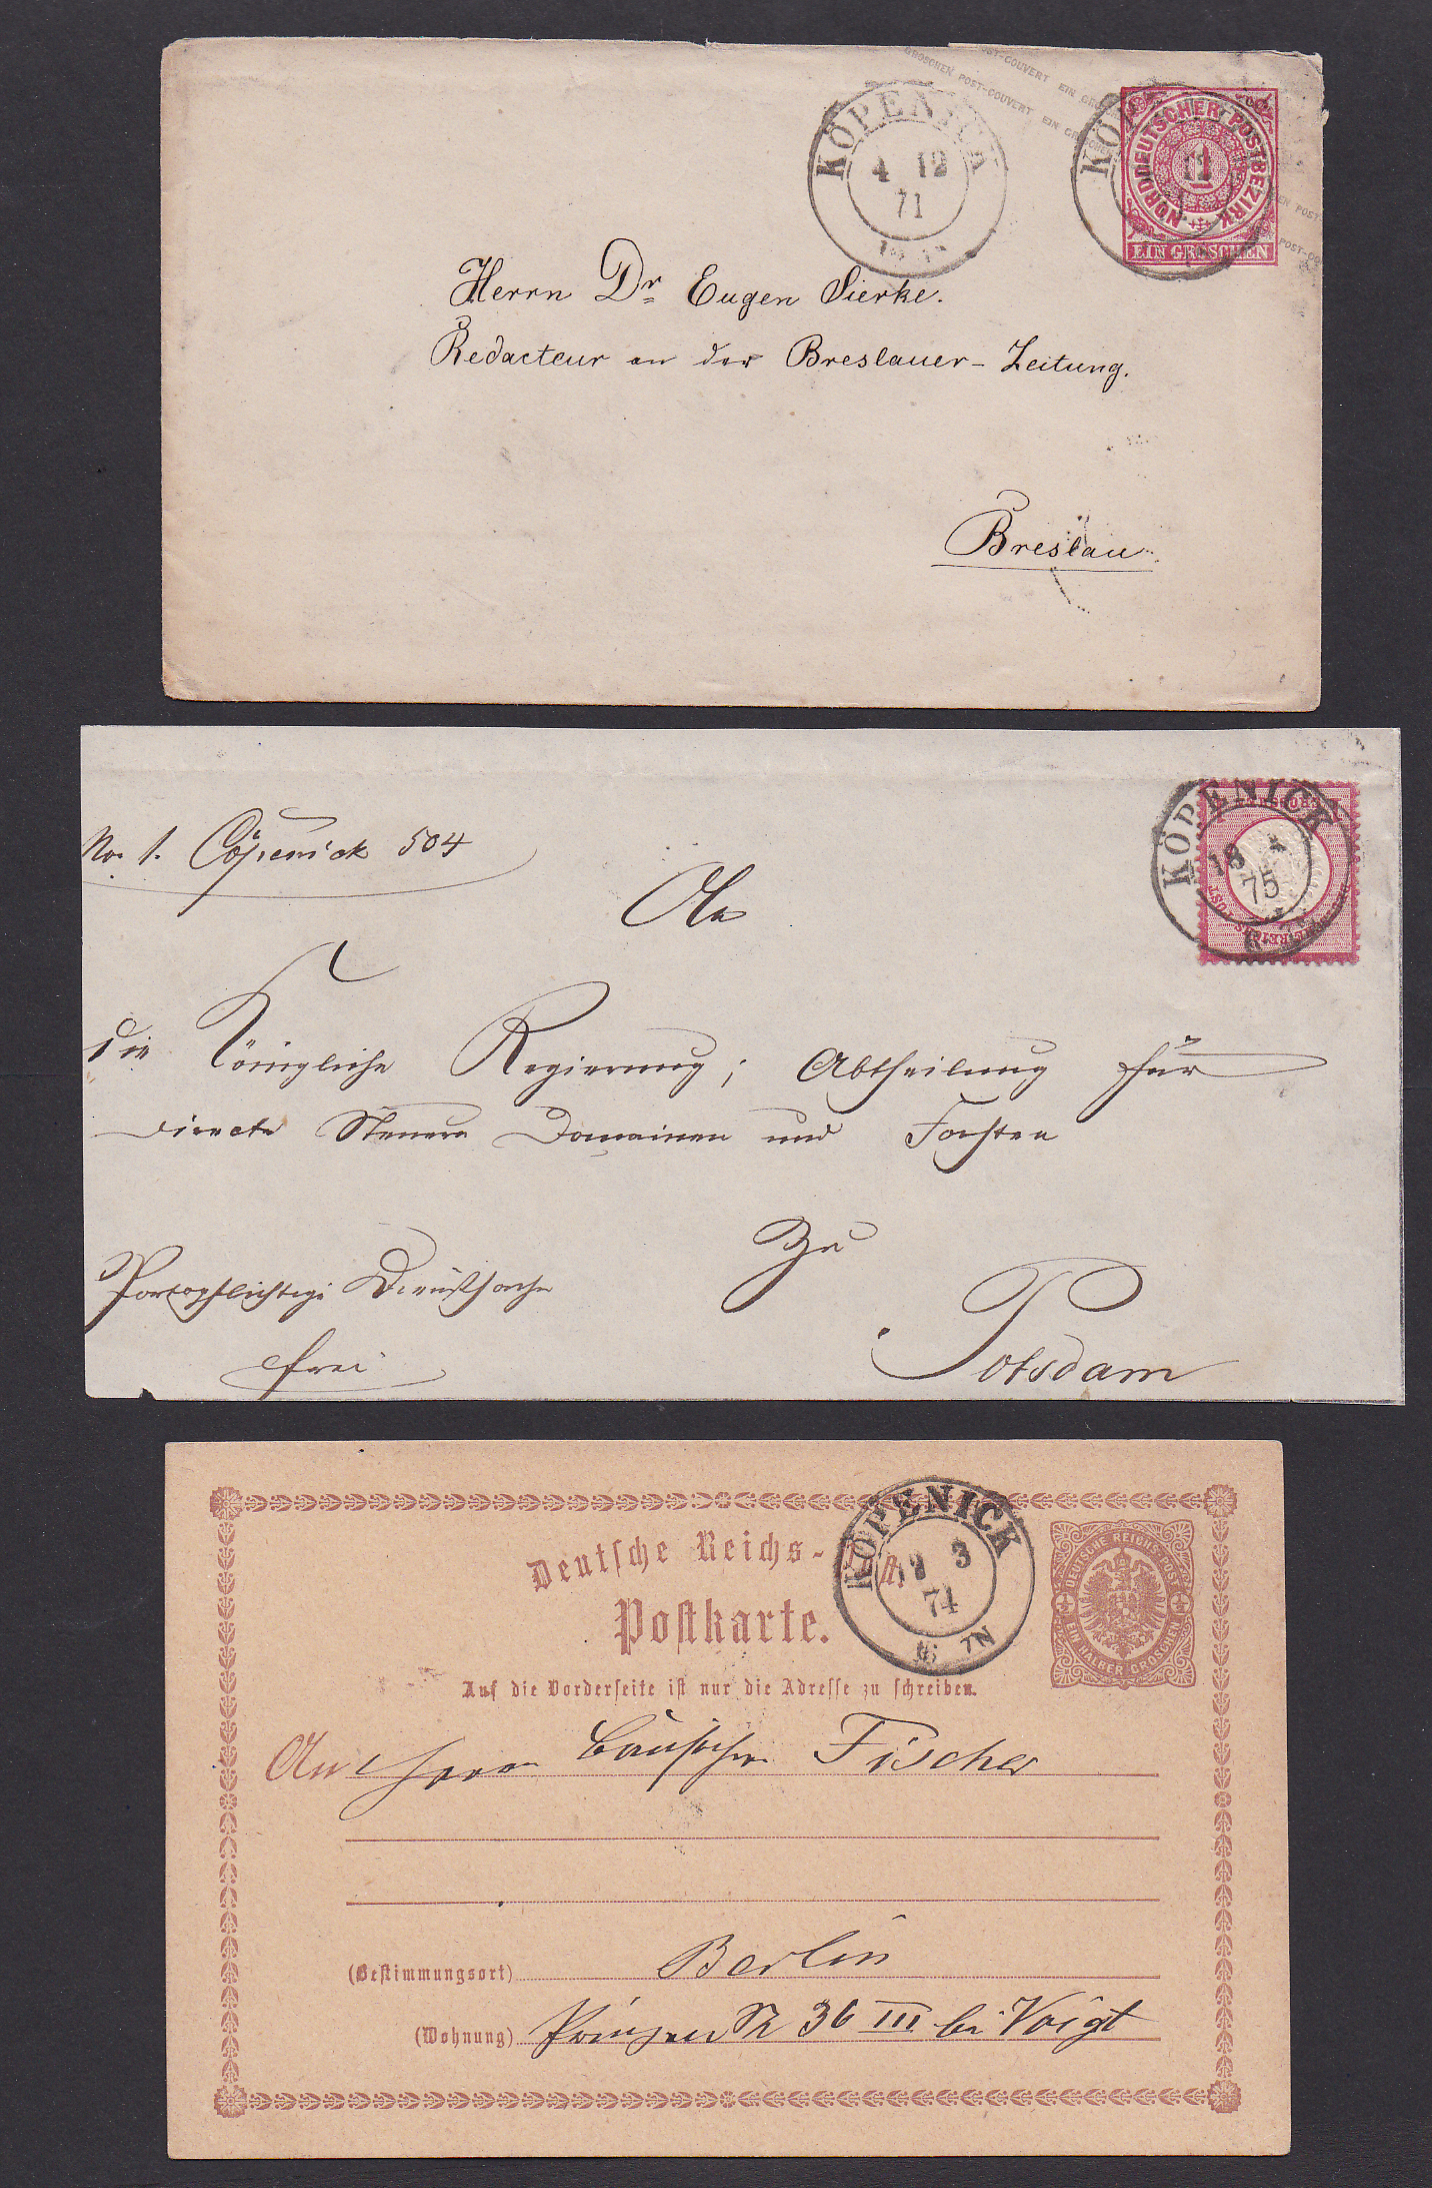 GROSCHEN POST-COUVERT EIN GR
POST-COUVERT EIN GRO
KÖPENICK
4 12
71
NORDDEUTSCHER POSTBEZIRK
1
EIN GROSCHEN
Herrn Dr Eugen Sierke.
Redacteur an der Breslauer-Zeitung.
Breslau.
No. 1. Cöpenick 504
KÖPENICK
18 4
75
An
die Königliche Regierung; Abtheilung für
directe Steuern Domainen und Forsten
Zu
Portopflichtige Dienstsache
frei
Potsdam
Deutsche Reichs-Post
Postkarte.
KÖPENICK
3
74
N
DEUTSCHE REICHS-POST
EIN HALBER GROSCHEN
Auf die Vorderseite ist nur die Adresse zu schreiben.
An Herrn Fischer
(Bestimmungsort) Berlin
(Wohnung) Prinzen Str 36 III bei Voigt